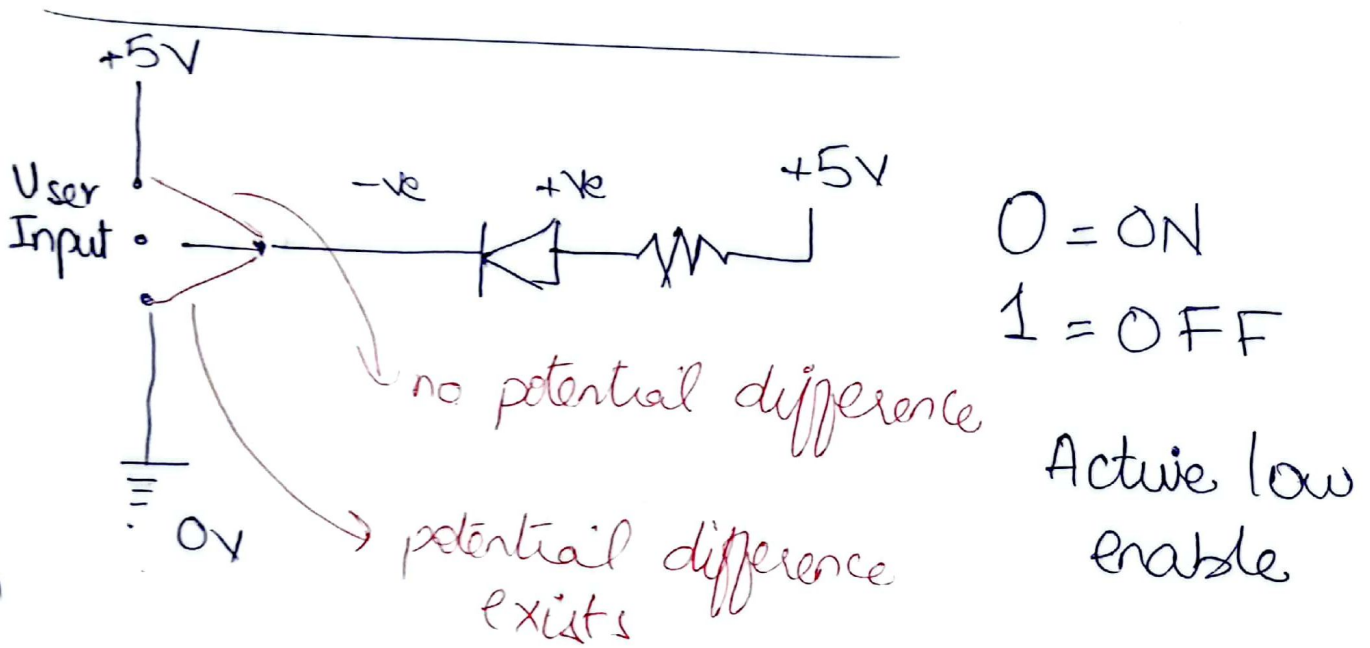 +5V
User
Input
-ve
+ve
+5V
0 = ON
1 = OFF
no potential difference
Active low
enable
0V
potential difference
exists